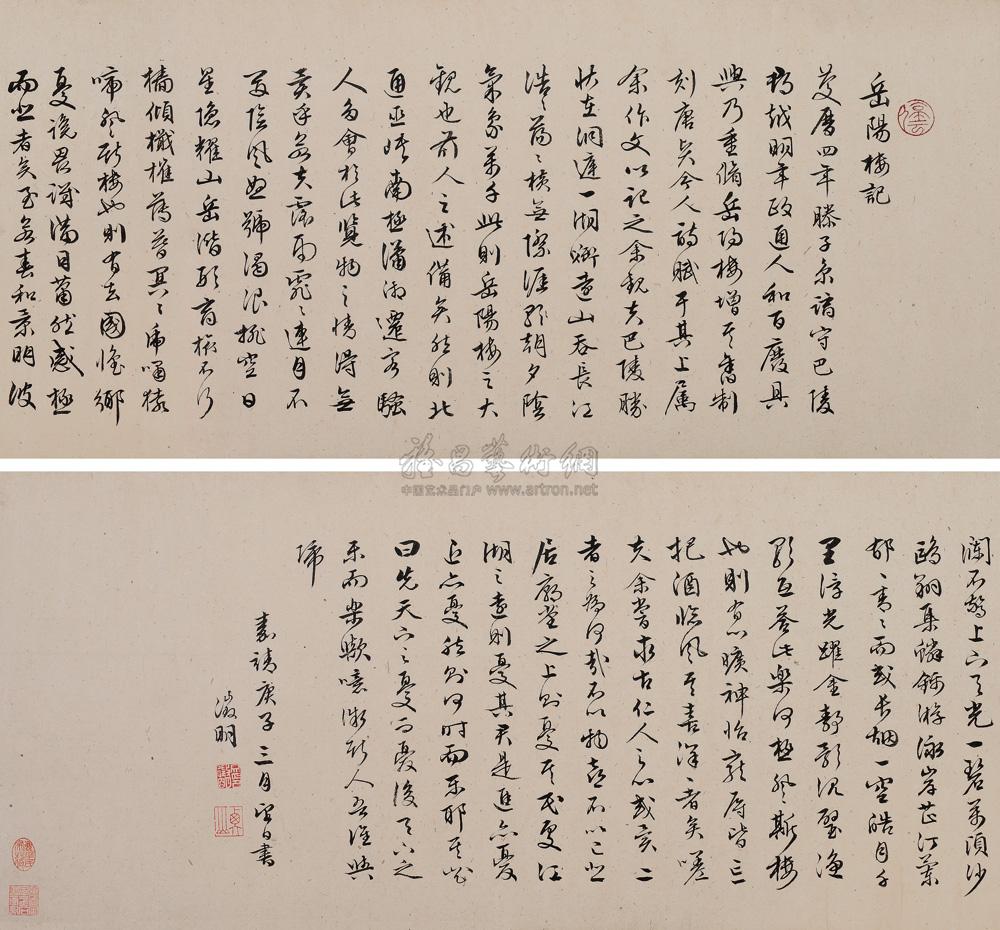 岳陽樓記
慶曆四年滕子京謫守巴陵
郡越明年政通人和百廢具
興乃重脩岳陽樓增其舊制
刻唐賢今人詩賦于其上屬
余作文以記之余觀夫巴陵勝
狀在洞庭一湖銜遠山吞長江
浩〻蕩〻橫無際涯朝夕陰
氣象萬千此則岳陽樓之大
觀也前人之述備矣然則北
通巫峽南極瀟湘遷客騷
人多會於此覽物之情得無
異乎若夫霪雨霏〻連月不
開陰風怒號濁浪排空日
星隱耀山岳潛形商旅不行
檣傾檝摧薄暮冥〻虎嘯猿
啼登斯樓也則有去國懷鄉
憂讒畏譏滿目蕭然感極
而悲者矣至若春和景明波
瀾不驚上下天光一碧萬頃沙
鷗翔集鱗錦游泳岸芷汀蘭
郁〻青〻而或長烟一空皓月千
里浮光躍金靜影沉璧漁
歌互答此樂何極登斯樓
也則有心曠神怡寵辱皆忘
把酒臨風其喜洋〻者矣嗟
夫余嘗求古仁人之心或異二
者之為何哉不以物喜不以己悲
居廟堂之上則憂其民處江
湖之遠則憂其君是進亦憂
退亦憂然則何時而樂耶其必
曰先天下之憂而憂後天下之
樂而樂歟噫微斯人吾誰與
歸
嘉靖庚子三月望日書
徵明
雅昌藝術網
中国艺术品门户 www.artron.net